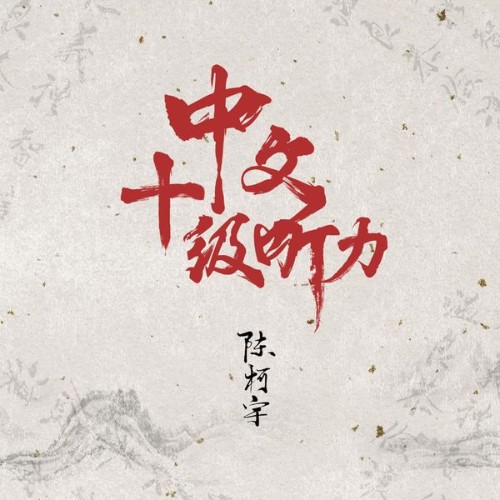 中文
十级听力
陈柯宇